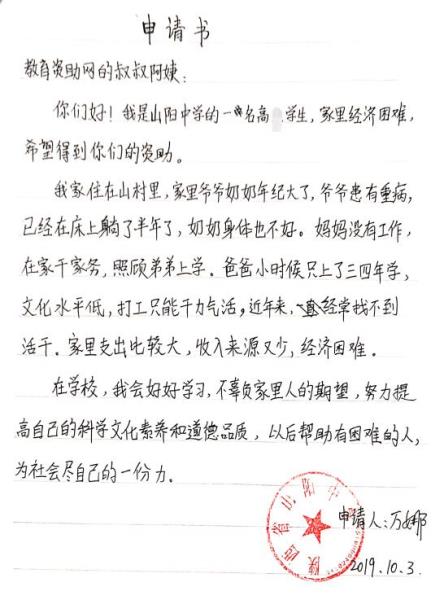 申请书
教育资助网的叔叔阿姨:
你们好!我是山阳中学的一名高 学生,家里经济困难,
希望得到你们的资助。
我家住在山村里,家里爷爷奶奶年纪大了,爷爷患有重病,
已经在床上躺了半年了,奶奶身体也不好。妈妈没有工作,
在家干家务,照顾弟弟上学。爸爸小时候只上了三四年学,
文化水平低,打工只能干力气活,近年来,一直经常找不到
活干。家里支出比较大,收入来源又少,经济困难。
在学校,我会好好学习,不辜负家里人的期望,努力提
高自己的科学文化素养和道德品质,以后帮助有困难的人,
为社会尽自己的一份力。
陕西省山阳中
申请人:万娜
2019.10.3.